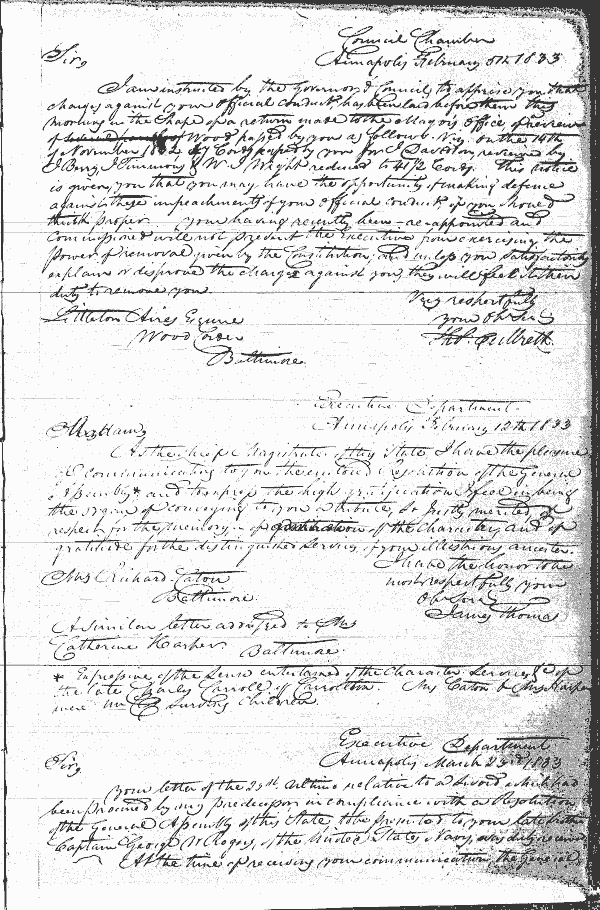 Council Chamber
Annapolis February 5th 1833
Sir,
I am instructed by the Governor & Council, to apprise you that
charges against your Official Conduct, has been laid before them this
morning in the Shape of a return made to the Mayor's Office of
of Wood passed by you as follows. Viz. on the 14th
of November 1832 47 Cords passed by you for J
J Berry, J Timmons & W. J. Wright reduced to 41 1/2 Cords. This Notice
is given you that you may have the opportunity of making defence
against these impeachments of your Official conduct if you should
think proper. your having recently been re-appointed and
Commissioned will not prevent the Executive from exercising the
Power of removal given by the Constitution; and unless you satisfactorily
explain or disprove the charges against you, they will feel it their
duty to remove you
Very respectfully
your Obt Servt
Thos Culbreth
Littleton Aires Esquire
Wood Corder
Baltimore
Executive Department
Annapolis February 12th 1833
Madam,
As the chief Magistrate of the State I have the pleasure
of communicating to you the enclosed resolution of the General
Assembly* and to express the high gratification I feel in being
the organ of conveying to you a tribute, so justly merited of
respect for the memory, of of the Character, and of
gratitude for the distinguished Services of your illustrious ancestor.
I have the honor to be
most respectfully your
Ob Servt
James Thomas
Mrs Richard Caton
Baltimore
A similar letter addressed to Mrs
Catherine Harper Baltimore
* Expressive of the Sense entertained of the Character Services &c of
the late Charles Carroll of Carrollton. Mrs Caton & Mrs Harper
were surviving Children
Executive Department
Annapolis March 23rd 1833
Sir,
your letter of the 21st Ultimo relative to a Sword which had
been procured by my predecessor in compliance with a Resolution
of the General Assembly of this State to be presented to your late brother
Captain George W Rogers, of the United States Navy, was duly received
At the time of receiving your communication the General